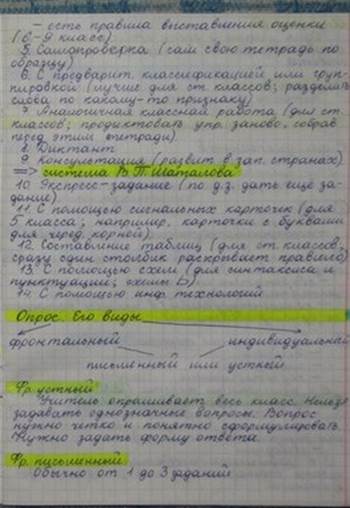 – есть правила выставления оценки
(6–9 класс)
5. Самопроверка (сам свою тетрадь по
образцу)
6. С предварит. классификацией или груп-
пировкой (лучше для ст. классов; разделить
слова по какому-то признаку)
7. Аналогичная классная работа (для ст.
классов; продиктовать упр. заново, собрав
перед этим тетради)
8. Диктант
9. Консультация (развит. в зап. странах)
=> система В.Ф. Шаталова
10. Экспресс-задание (по д.з. дать ещё за-
дание)
11. С помощью сигнальных карточек (для
5 классов; например, карточки с буквами
для черед. корней)
12. Составление таблиц (для ст. классов,
сразу один столбик раскрывает правило)
13. С помощью схем (для синтаксиса и
пунктуации; схемы
14. С помощью инф. технологий
Опрос. Его виды
фронтальный индивидуальный
письменный или устный
Фр. устный
Учитель опрашивает весь класс. Нельзя
задавать однозначные вопросы. Вопрос
нужно чётко и понятно сформулировать.
Нужно задать форму ответа.
Фр. письменный
Обычно от 1 до 3 заданий